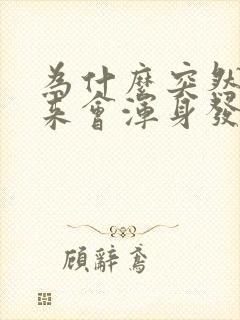 為什麼突然
來會渾身發
顧辭鳶